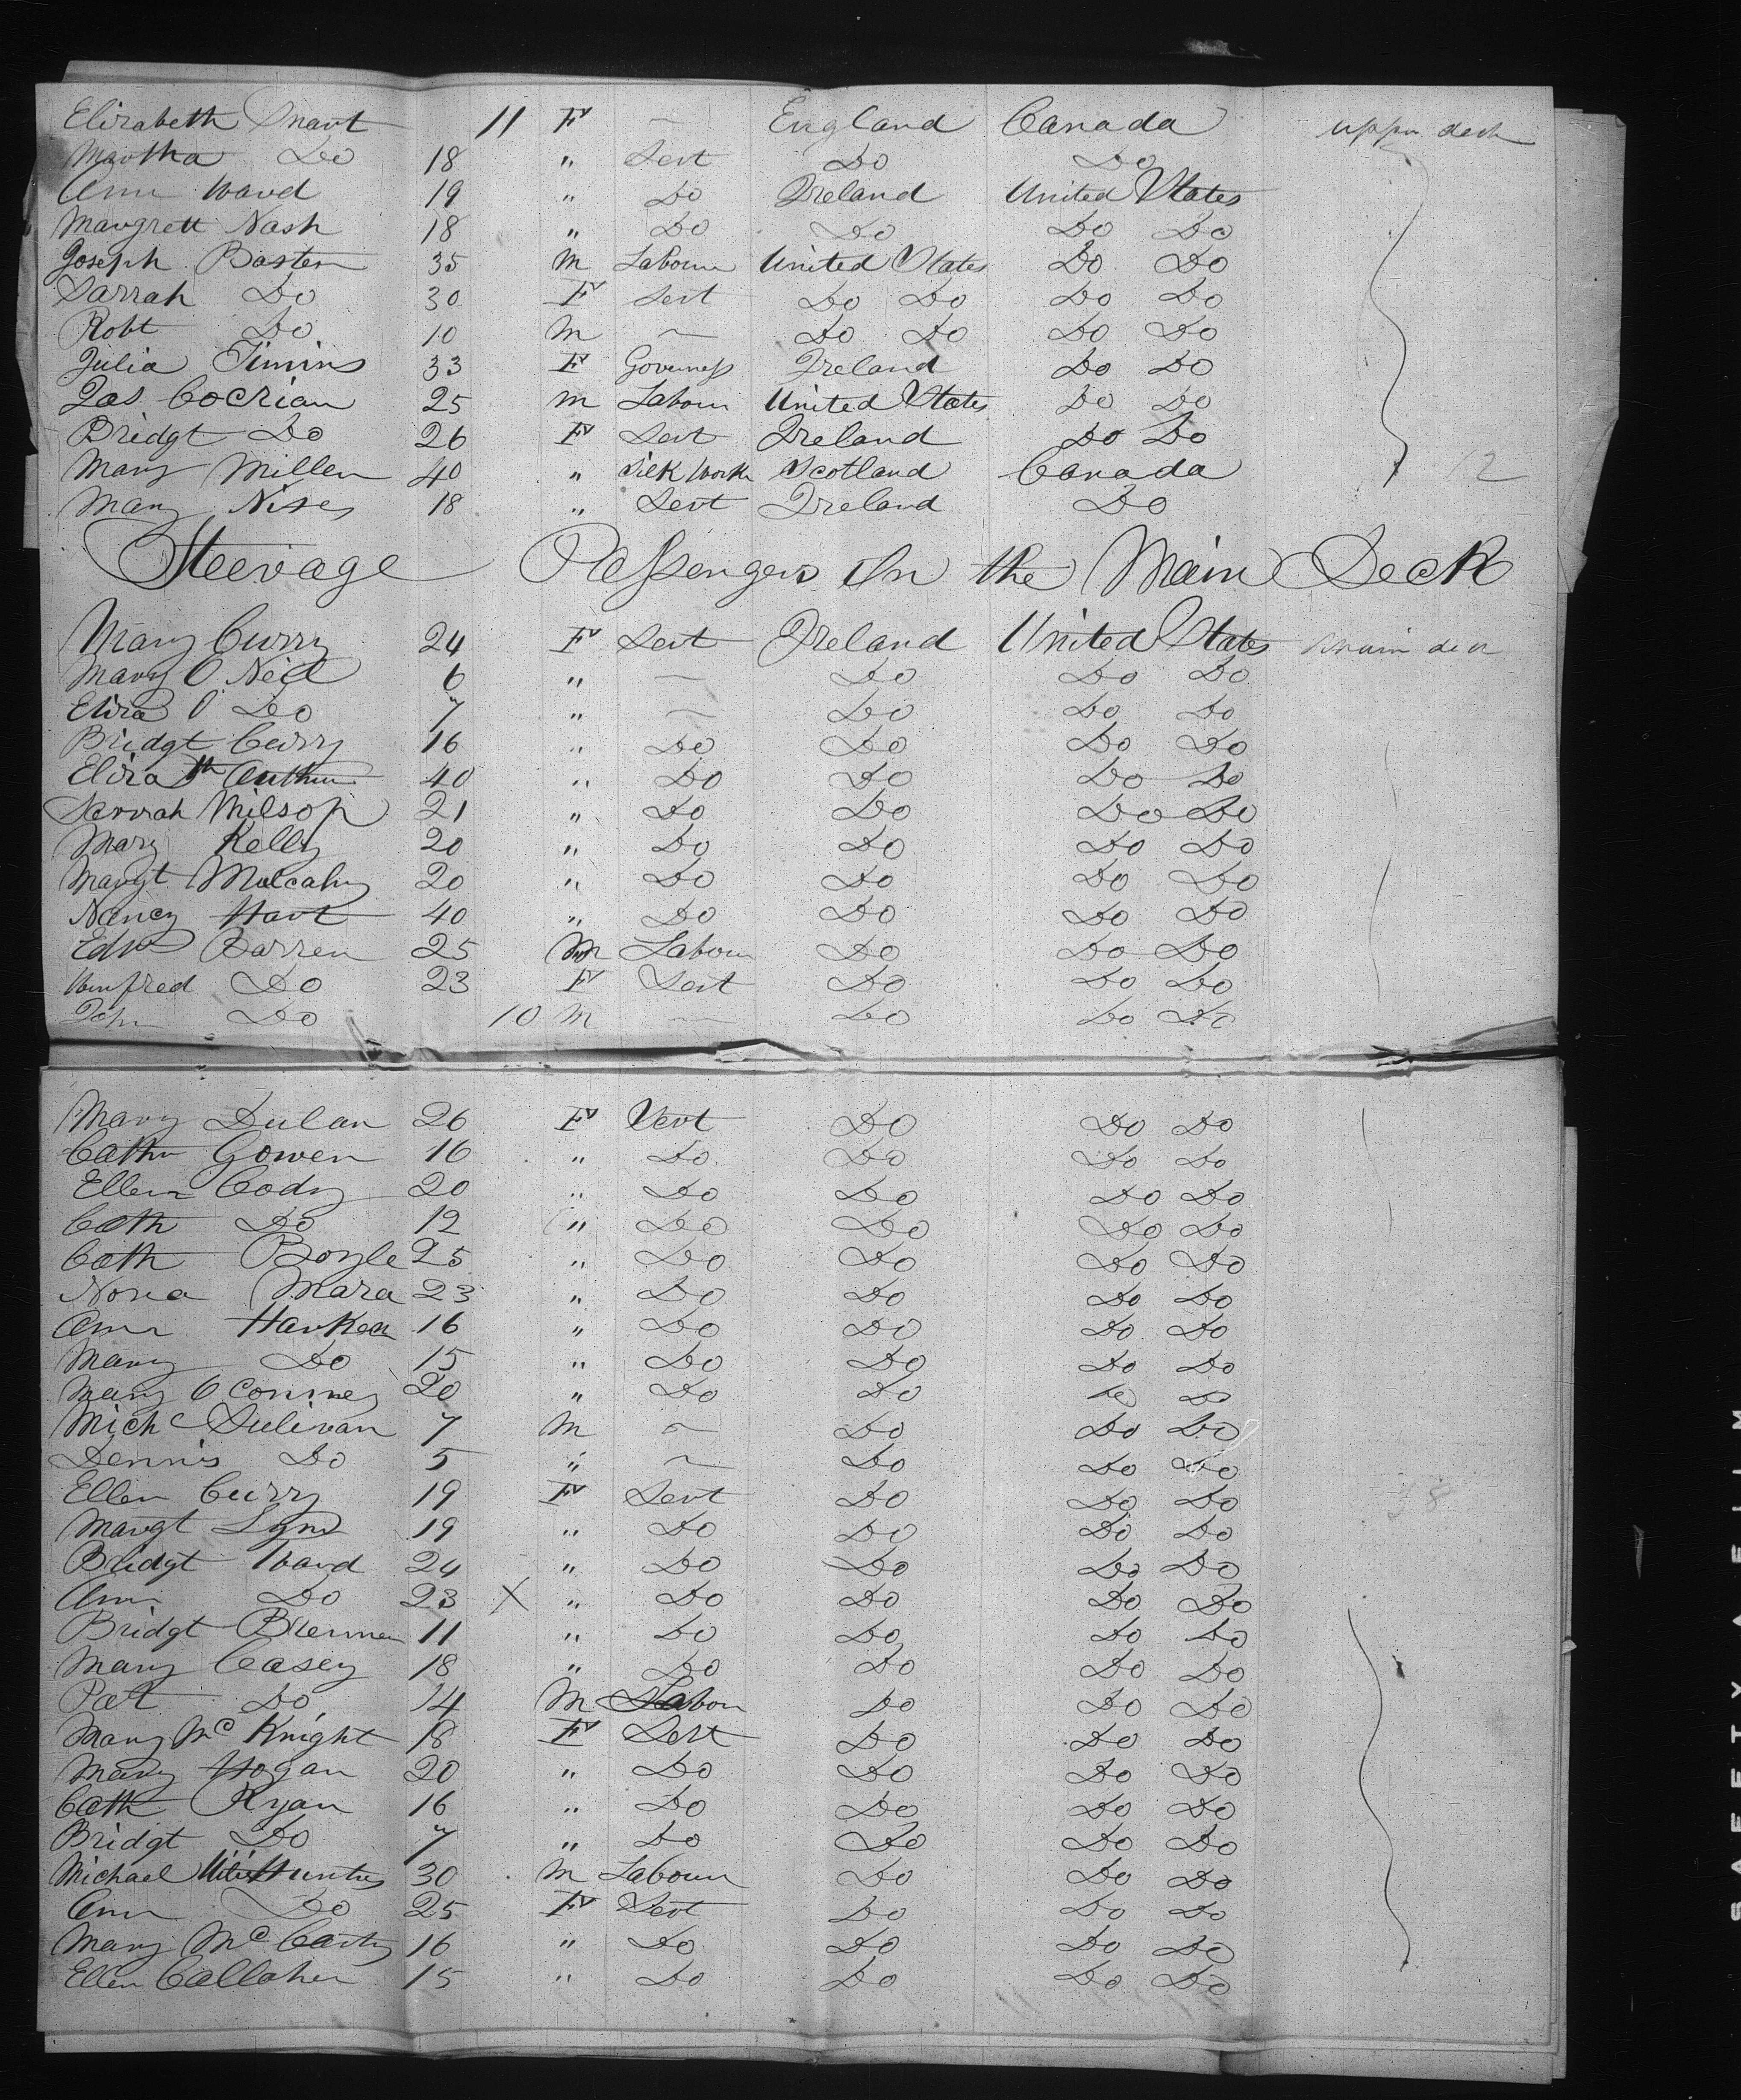 Elizabeth Smart 11 F — England Canada upper deck
Martha Do 18 " Sert Do Do
Ann Ward 19 " Do Ireland United States
Margrett Nash 18 " Do Do Do Do
Joseph Basten 35 M Labour United States Do Do
Sarrah Do 30 F Sert Do Do Do Do
Robt Do 10 M — Do Do Do Do
Julia Timins 33 F Governess Ireland Do Do
Jas Cocrian 25 M Labour United States Do Do
Bridgt Do 26 F Sert Ireland Do Do
Mary Miller 40 " Silk Worker Scotland Canada 12
Mary 18 " Sert Ireland Do
Steerage Passengers On the Main Deck
Mary Curry 24 F Sert Ireland United States main deck
Mary O Neil 6 " — Do Do Do
Eliza O Do 7 " — Do Do Do
Bridgt Curry 16 " Do Do Do Do
Eliza 40 " Do Do Do Do
Sarrah Milsop 21 " Do Do Do Do
Mary Kelly 20 " Do Do Do Do
Margt Mulcahy 20 " Do Do Do Do
Nancy Hart 40 " Do Do Do Do
Edwd Barren 25 M Labour Do Do Do
Winfred Do 23 F Sert Do Do Do
John Do 10 M — Do Do Do
Mary Dulan 26 F Sert Do Do Do
Cathn Gowen 16 " Do Do Do Do
Ellen Cody 20 " Do Do Do Do
Cath Do 12 " Do Do Do Do
Cath Boyle 25 " Do Do Do Do
Nora Mara 23 " Do Do Do Do
Ann Harken 16 " Do Do Do Do
Mary Do 15 " Do Do Do Do
Mary O Conner 20 " Do Do Do Do
Michl Sulivan 7 M — Do Do Do
Dennis Do 5 " — Do Do Do
Ellen Curry 19 F Sert Do Do Do
Margt Lynd 19 " Do Do Do Do
Bridgt Ward 24 " Do Do Do Do
Ann Do 23 X " Do Do Do Do
Bridgt Brennen 11 " Do Do Do Do
Mary Casey 18 " Do Do Do Do
Pat Do 14 M Labour Do Do Do
Mary Mc Knight 18 F Sert Do Do Do
Mary Hogan 20 " Do Do Do Do
Cath Ryan 16 " Do Do Do Do
Bridgt Do 7 " Do Do Do Do
Michael 30 M Labour Do Do Do
Ann Do 25 F Sert Do Do Do
Mary Mc Carty 16 " Do Do Do Do
Ellen Callaher 15 " Do Do Do Do